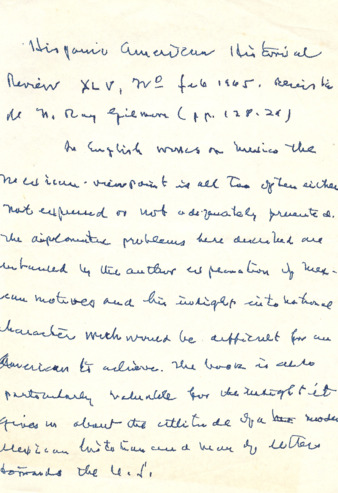 Hispanic American Historical
Review XLV, Nº feb 1965. Revista
de N. Ray Gilmore (pp. 128-28)
In English works on Mexico the
Mexican viewpoint is all too often either
not expressed or not adequately presented.
The diplomatic problems here described are
enhanced by the author explanation of Mex-
ican motives and his insight into national
character which would be difficult for an
American to achieve. The book is also
particularly valuable for the insight it
gives us about the attitude of a modern
Mexican historian and man of letters
towards the U.S.